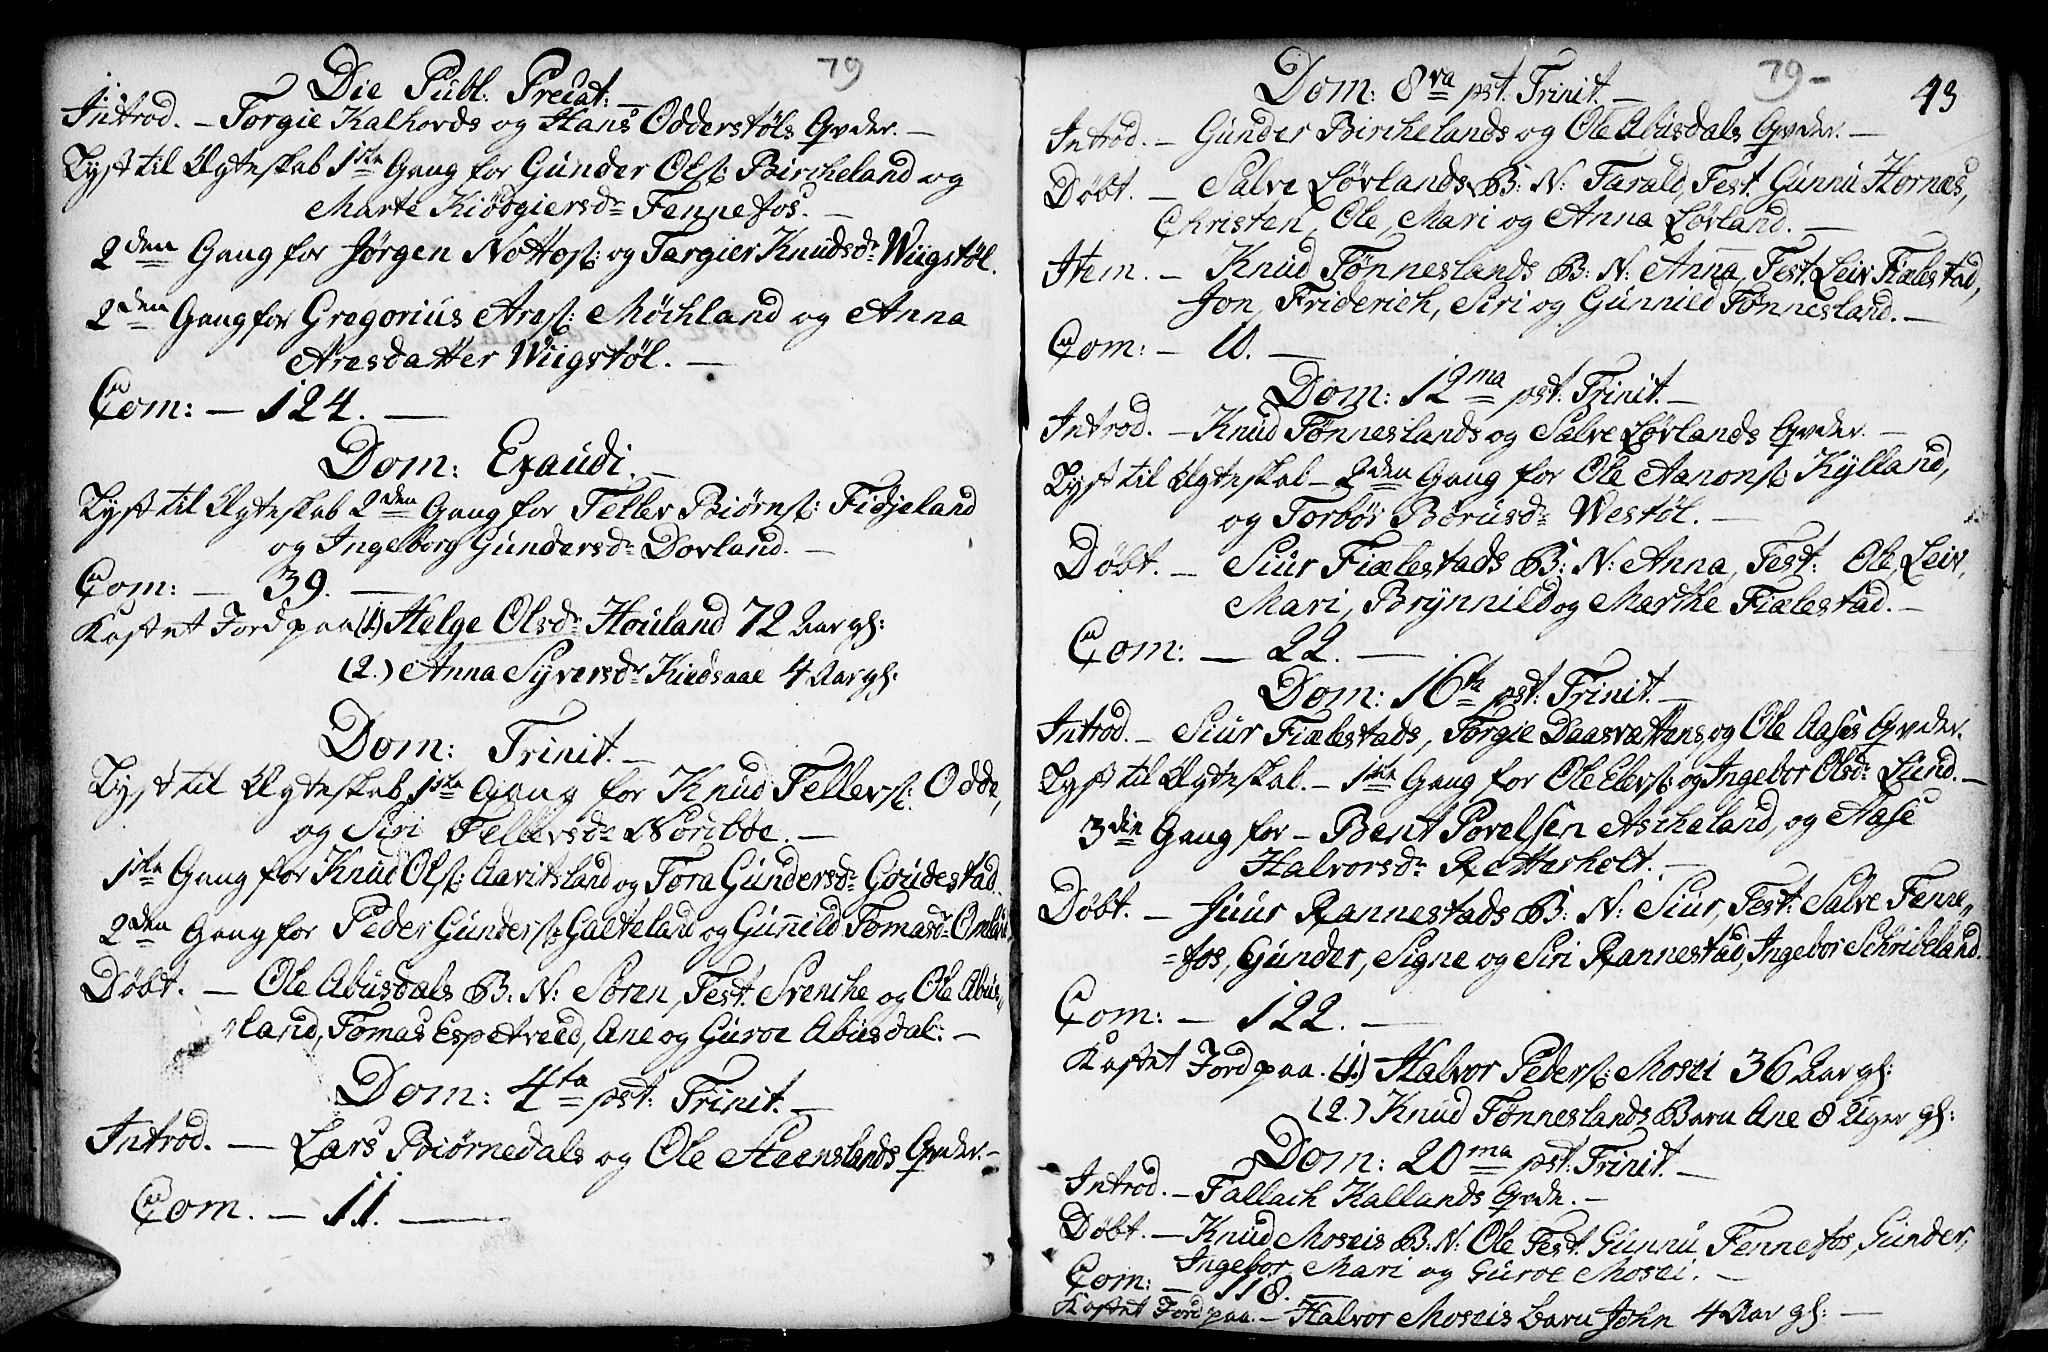 79
Die Publ: Precat: —
Introd. — Torgie Kalhovds og Hans Odderstøls Qvder. —
Lyst til Ægteskab 1ste Gang for Gunder Ols: Bircheland og
Marte Kiödgiersdr Fennefos. —
2den Gang for Jørgen Nottos: og Targier Knudsdr Wiigstøl.
2den Gang for Gregorius Ares: Möchland og Anna
Aresdatter Wiigstøl. —
Com: — 124. —
Dom: Exaudi. —
Lyst til Ægteskab 2den Gang for Tellev Biørns: Fidjeland
og Ingeborg Gundersdr Dovland. —
Com: — 39. —
Kastet Jord paa (1.) Helge Olsdr Houland 72 Aar gl:
(2.) Anna Syversdr Kiedsaae 4 Aar gl:
Dom: Trinit. —
Lyst til Ægteskab 1ste Gang for Knud Tellevs: Odde,
og Siri Tellevsdr Noribøe. —
1ste Gang for Knud Ols: Aavitsland og Tora Gundersdr Goudestad.
2den Gang for Peder Gunders: Galteland og Gunnild Tomasdr
Døbt. — Ole Abusdals B: N: Søren, Test: Svenche og Ole Abus-
land, Tomas Espetveed, Ane og Guroe Abusdal: —
Dom: 4ta pst: Trinit. —
Introd. — Lars Biørnedals og Ole Steenslands Qvder. —
Com. — 11. —
79 —
43
Dom: 8va pst: Trinit. —
Introd. — Gunder Birchelands og Ole Abusdals Qvder. —
Døbt. — Salve Lørlands B: N: Tarald, Test: Gunnu Hornæs,
Christen, Ole, Mari og Anna Lørland. —
Item. — Knud Tønneslands B: N: Anna, Test: Leiv Fiælestad,
Jon, Friderich, Siri og Gunnild Tønnesland. —
Com: — 10. —
Dom: 12ma pst: Trinit. —
Introd. — Knud Tønneslands og Salve Lørlands Qvder. —
Lyst til Ægteskab — 2den Gang for Ole Aanons: Kylland,
og Torbøs Børusdr Westøl. —
Døbt. — Siur Fiælestads B: N: Anna, Test: Ole, Leiv,
Mari, Brynnild og Marthe Fiælestad. —
Com: — 22. —
Dom: 16te pst: Trinit. —
Introd. — Siur Fiælestads, Torgie Daasvattens og Ole Aases Qvder.
Lyst til Ægteskab. — 1ste Gang for Ole Elevs: og Ingebor Olsdr Lund. —
3die Gang for — Bent Povelsen Ascheland, og Aase
Halvorsdr Retterholt. —
Døbt. — Juur Rannestads B: N: Siur, Test: Salve Fenne-
=fos, Gunder, Signe og Siri Rannestad, Ingebor Schribeland.
Com: — 122. —
Kastet Jord paa. (1.) Halvor Peders: Mosei 36 Aar gl:
(2.) Knud Tønneslands Barn Ane 8 Uger gl:
Dom: 20ma pst: Trinit. —
Introd. — Tallach Kallands Qvde. —
Døbt. — Knud Moseis B: N: Ole Test: Gunnu Fennefos, Gunder,
Ingebor, Mari og Guroe Mosei. —
Com: — 118. —
Kastet Jord paa. — Halvor Moseis barn John 4 Aar gl: —